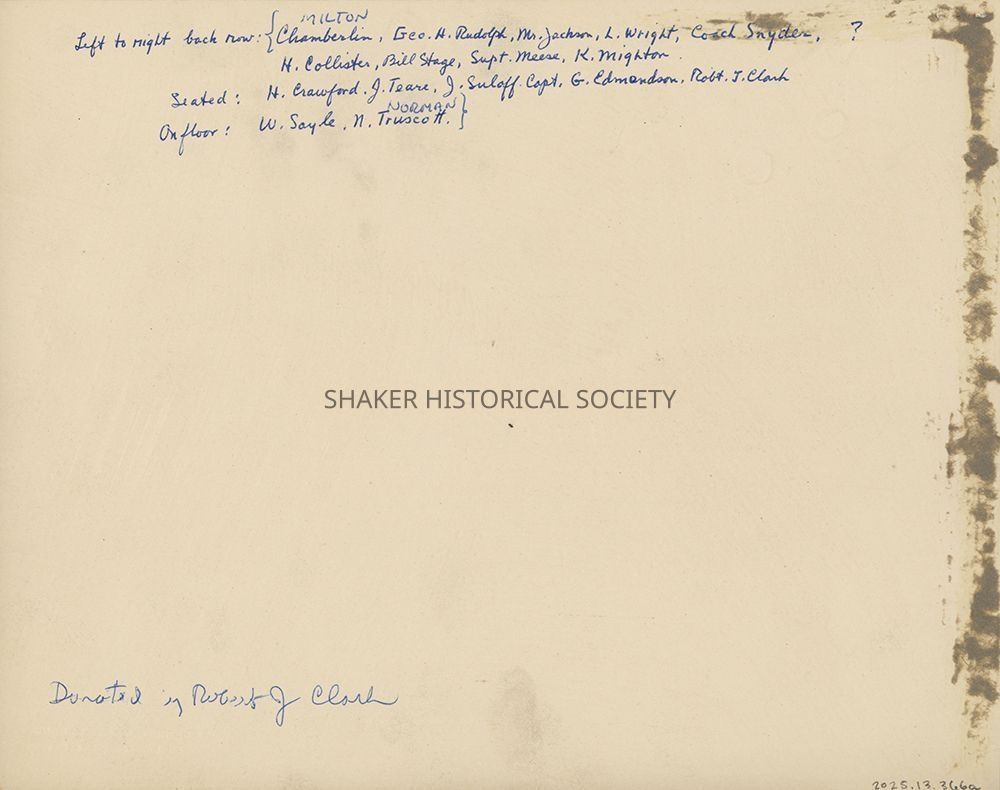 MILTON
Left to right back row: { Chamberlin, Geo. H. Rudolph, Mr. Jackson, L. Wright, Coach Snyder, ?
H. Collister, Bill Stage, Supt. Meese, K. Mighton.
Seated: H. Crawford. J. Teare, J. Suloff. Capt, G. Edmondson, Robt. J. Clark
NORMAN
On floor: W. Sayle, N. Truscott. }
SHAKER HISTORICAL SOCIETY
Donated by Robert J Clark
2025.13.366a